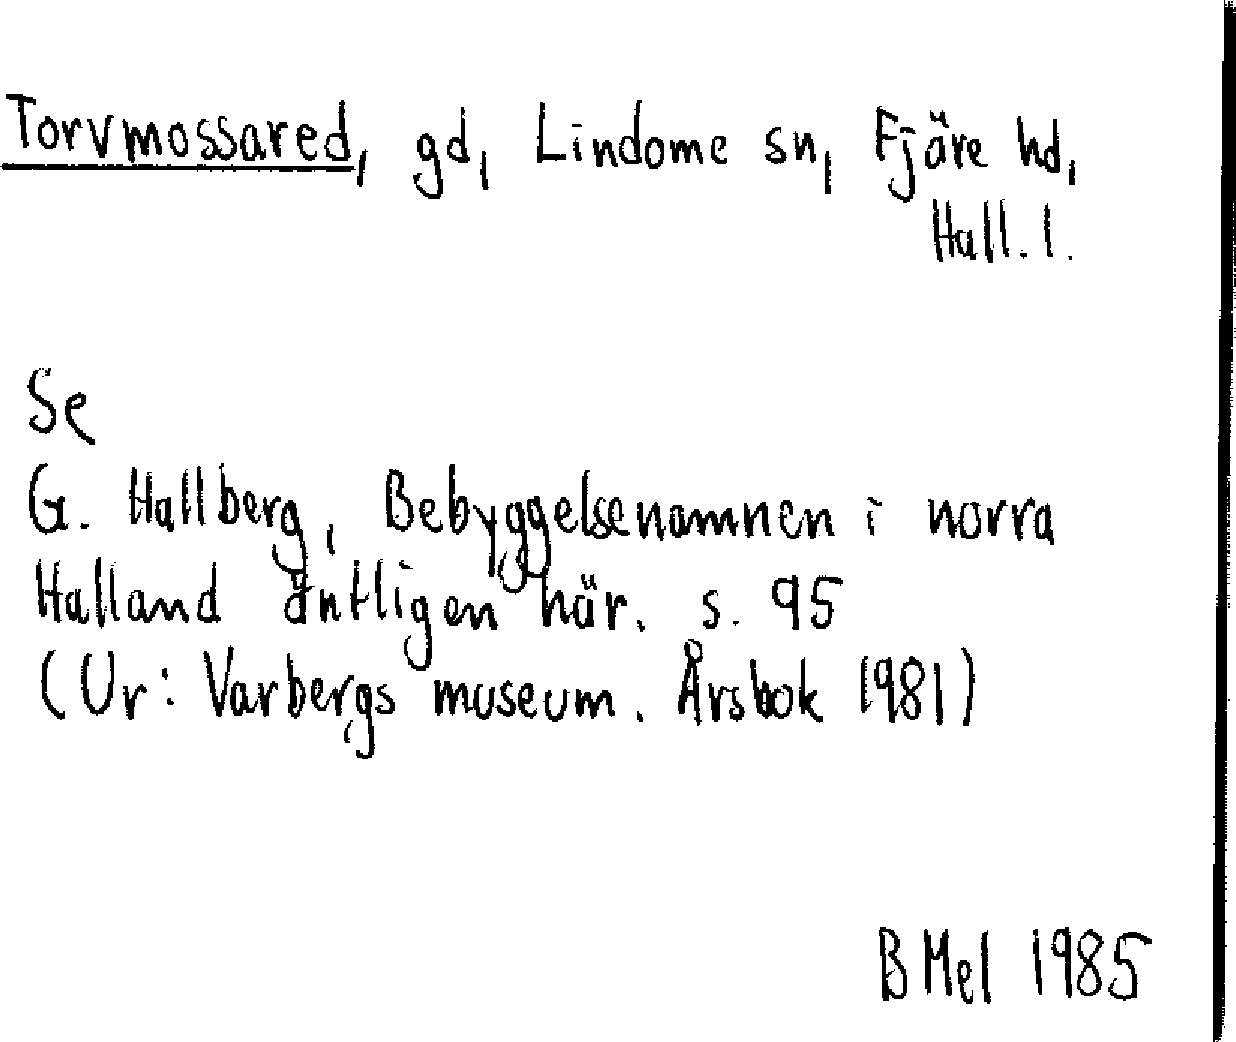 Torvmossared, gd, Lindome sn, Fjäre hd,
Hall. l.
Se
G. Hallberg, Bebyggelsenamnen i norra
Halland äntligen här. s. 95
(Ur: Varbergs museum. Årsbok 1981)
B Mel 1985